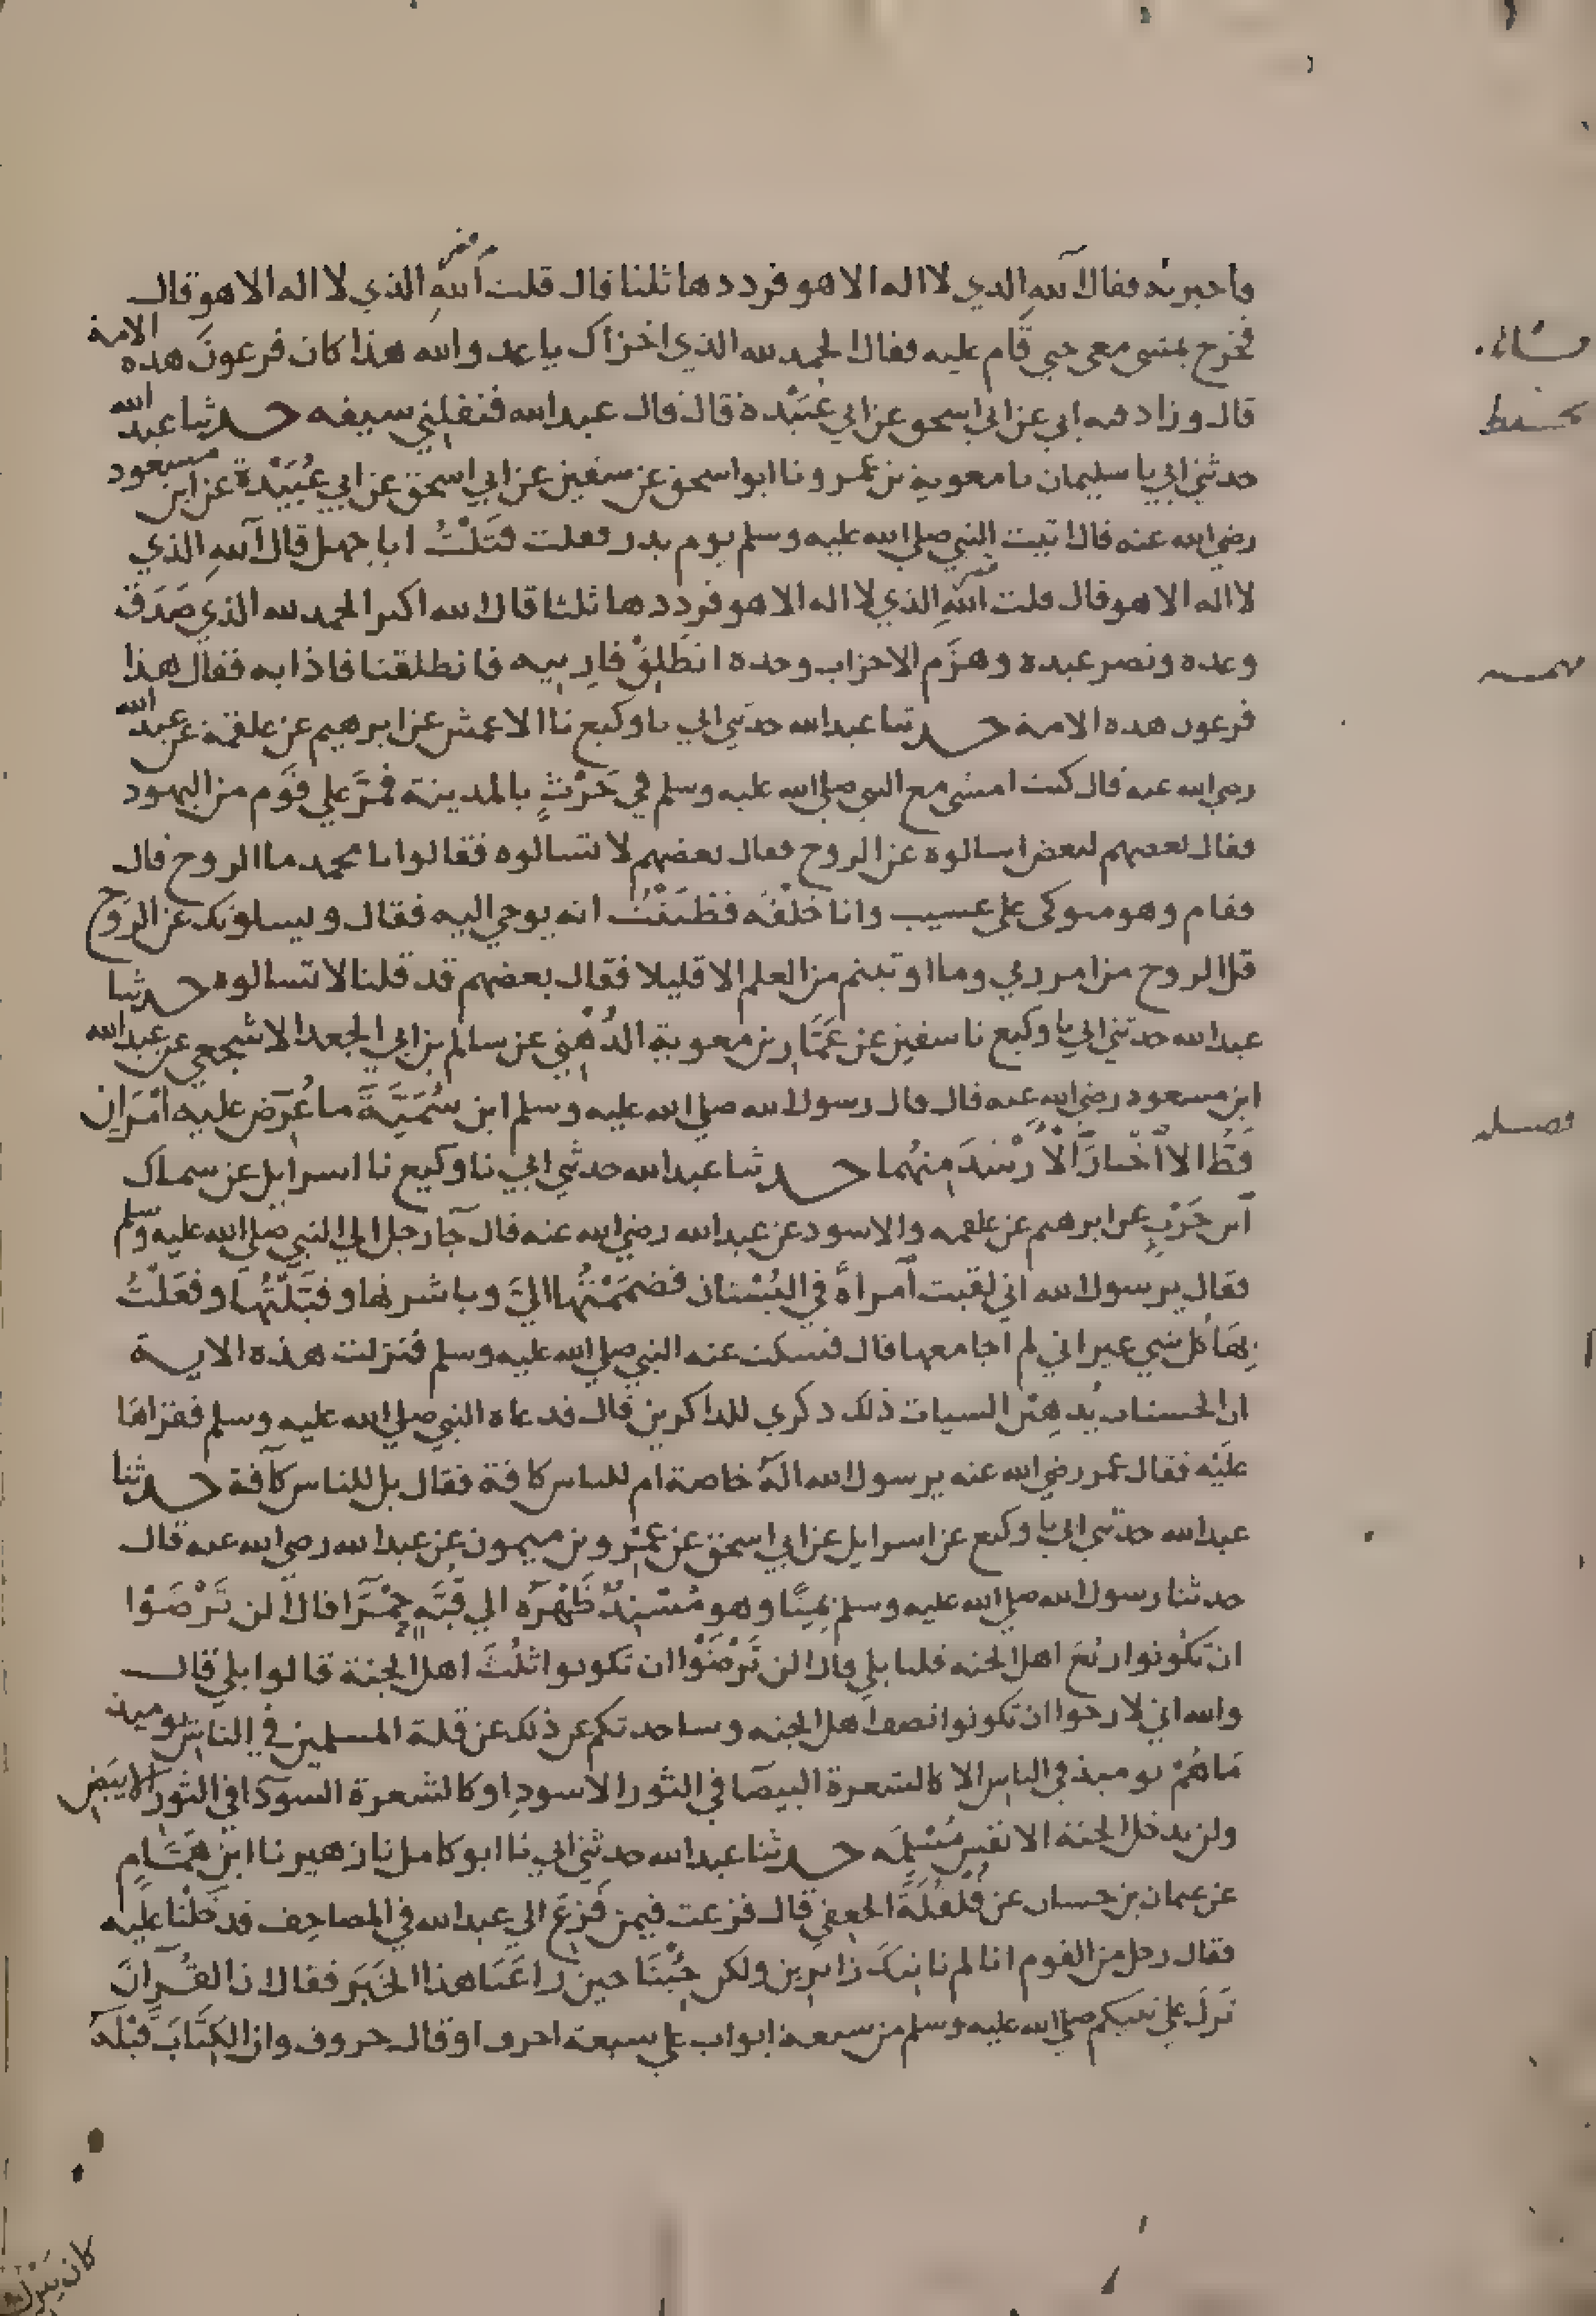 فاخبرته فقال الله الذي لا اله الا هو فرددها ثلثا قال قلت الله الذي لا اله الا هو قال
فخرج يمشي معي حتي قام عليه فقال الحمد لله الذي اخزاك يا عدو الله هذا كان فرعون هذه الامة
قال وزاد فيه ابي عن ابي اسحق عن ابي عُبَيْدة قال قال عبد الله فنفلني سيفه حدثنا عبد الله
حدثني ابي نا سليمان نا معوية بن عمرو نا ابو اسحق عن سفين عن ابي اسحق عن ابي عُبَيْدة عن ابن مسعود
رضي الله عنه قال اتيت النبي صلي الله عليه وسلم يوم بدر فقلت قَتَلْتُ ابا جهل قال آلله الذي
لا اله الا هو قال قلت آلله الذي لا اله الا هو فرددها ثلثا قال الله اكبر الحمد لله الذي صَدَق
وعده ونصر عبده وهزَم الاحزاب وحده انطَلِقْ فارنيه فانطلقنا فاذا به فقال هذا
فرعون هذه الامة حدثنا عبد الله حدثني ابي نا وكيع نا الاعمش عن ابرهيم عن علقمة عن عبد الله
رضي الله عنه قال كنت امشي مع النبي صلي الله عليه وسلم في حَرْثٍ بالمدينة فمَرَّ علي قوم من اليهود
فقال بعضهم لبعض اسالوه عن الروح فقال بعضهم لا تسالوه فقالوا يا محمد ما الروح قال
فقام وهو متوكي علي عسيب وانا خلْفَه فظنَنْتُ انه يوحي اليه فقال ويسلونك عن الروح
قل الروح من امر ربي وما اوتيتم من العلم الا قليلا فقال بعضهم قد قلنا لا تسالوه حدثنا
عبد الله حدثني ابي نا وكيع نا سفين عن عَمَّار بن معوية الدُّهْني عن سالم بن ابي الجعد الاشجعي عن عبد الله
ابن مسعود رضي الله عنه قال قال رسول الله صلي الله عليه وسلم ابن سُمَيَّةَ ما عُرِض عليه امْرَانِ
قَطُّ الا اخْتارَ الْاَرْشَدَ مِنهُما حدثنا عبد الله حدثني ابي نا وكيع نا اسرايل عن سماك
ابن حَرْبٍ عن ابرهيم عن علقمه والاسود عن عبد الله رضي الله عنه قال جا رجل الي النبي صلي الله عليه وسلم
فقال يرسول الله اني لقيت امراةً في البُسْتان فضمَمْتُها اليَّ وباشرتُها وقبَّلْتُها وفعَلْتُ
بِهَا كُل شي غير اني لم اجامعها قال فسكت عنه النبي صلي الله عليه وسلم فنزلت هذه الاية
ان الحسنات يُذهِبْن السيات ذلك ذكري للذاكرين قال فدعاه النبي صلي الله عليه وسلم فقراها
علَيْه فقال عمر رضي الله عنه يرسول الله الَهُ خاصة ام للناس كافة فقال بل للناس كافة حدثنا
عبد الله حدثني ابي نا وكيع عن اسرايل عن ابي اسحق عن عَمْرو بن ميمون عن عبد الله رضي الله عنه قال
حدثنا رسول الله صلي الله عليه وسلم بمِنًا وهو مُسْنِدٌ ظَهْرَه الي قُبَّةٍ حَمْرَا قال الن تَرْضَوْا
ان تكُونوا رُبعَ اهل الجنه قلنا بلي قال الن تَرْضَوْا ان تكونوا ثلُثَ اهل الجنة قالوا بلي قال
والله اني لارجوا ان تكونوا نصف اهل الجنه وساحدثكم عن ذلك عن قلة المسلمين في الناس يوميذ
مَا هُمْ يوميذ في الناس الا كالشعرة البيضا في الثور الاسودِ او كالشعرة السودا في الثور الابيَضِ
ولن يدخل الجنة الا نفس مُسْلِمَه حدثنا عبد الله حدثني ابي نا ابو كامل نا زهير نا ابن هَمَّامٍ
عن عثمان بن حسان عن فُلْفُلَةَ الجعفي قال فزعت فيمن فَزِعَ الي عبد الله في المصاحِف فدَخَلْنا علَيه
فقال رجل من القوم انا لم ناتِكَ زايرين ولكن جِئْنَا حين راعَنَا هذا الخَبَر فقال ان القُرآنَ
نَزلَ علي نبيكم صلي الله عليه وسلم من سبعة ابواب علي سبعة احرف او قال حروف وان الكِتَابَ قبْلَه
كان يَنْزل